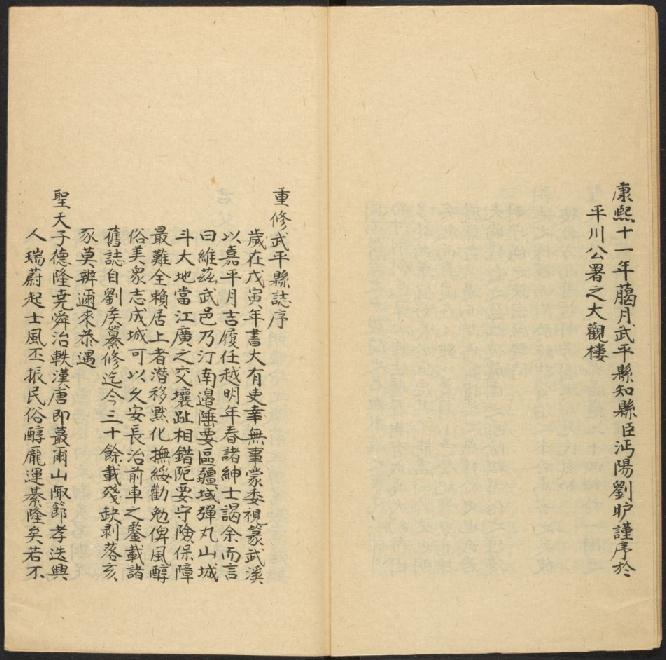 康熙十一年蔏月武平縣知縣臣沔陽劉旷謹序於
平川公署之大觀樓
重修武平縣誌序
歲在戊寅年書大有吏幸無事蒙委視篆武溪
以嘉平月吉履任越明年春諸紳士謁余而言
曰維茲武邑乃汀南邊陲要區疆域彈丸山城
斗大地當江廣之交壤趾相錯阨要守險保障
最難全賴居上者潛移黙化撫綏勸勉俾風醇
俗美衆志成城可以久安長治前車之鏨載諸
舊誌自劉侯纂修迄今三十餘載殘缺剥落亥
豕莫辨邇來恭遇
聖天子德隆堯舜治軼漢唐即蕞爾山陬節孝迭興
人瑞蔚起士風丕振民俗醇龐運綦隆矣若不